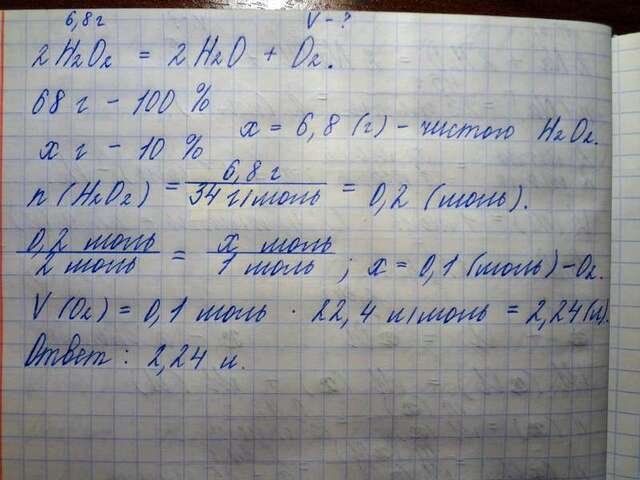 6,8 г V - ?
2 H₂O₂ = 2 H₂O + O₂.
68 г - 100 %
x г - 10 % x = 6,8 (г) - чистого H₂O₂.
n (H₂O₂) = 6,8 г / 34 г/моль = 0,2 (моль).
0,2 моль / 2 моль = x моль / 1 моль ; x = 0,1 (моль) - O₂.
V (O₂) = 0,1 моль · 22,4 л/моль = 2,24 (л).
Ответ : 2,24 л.